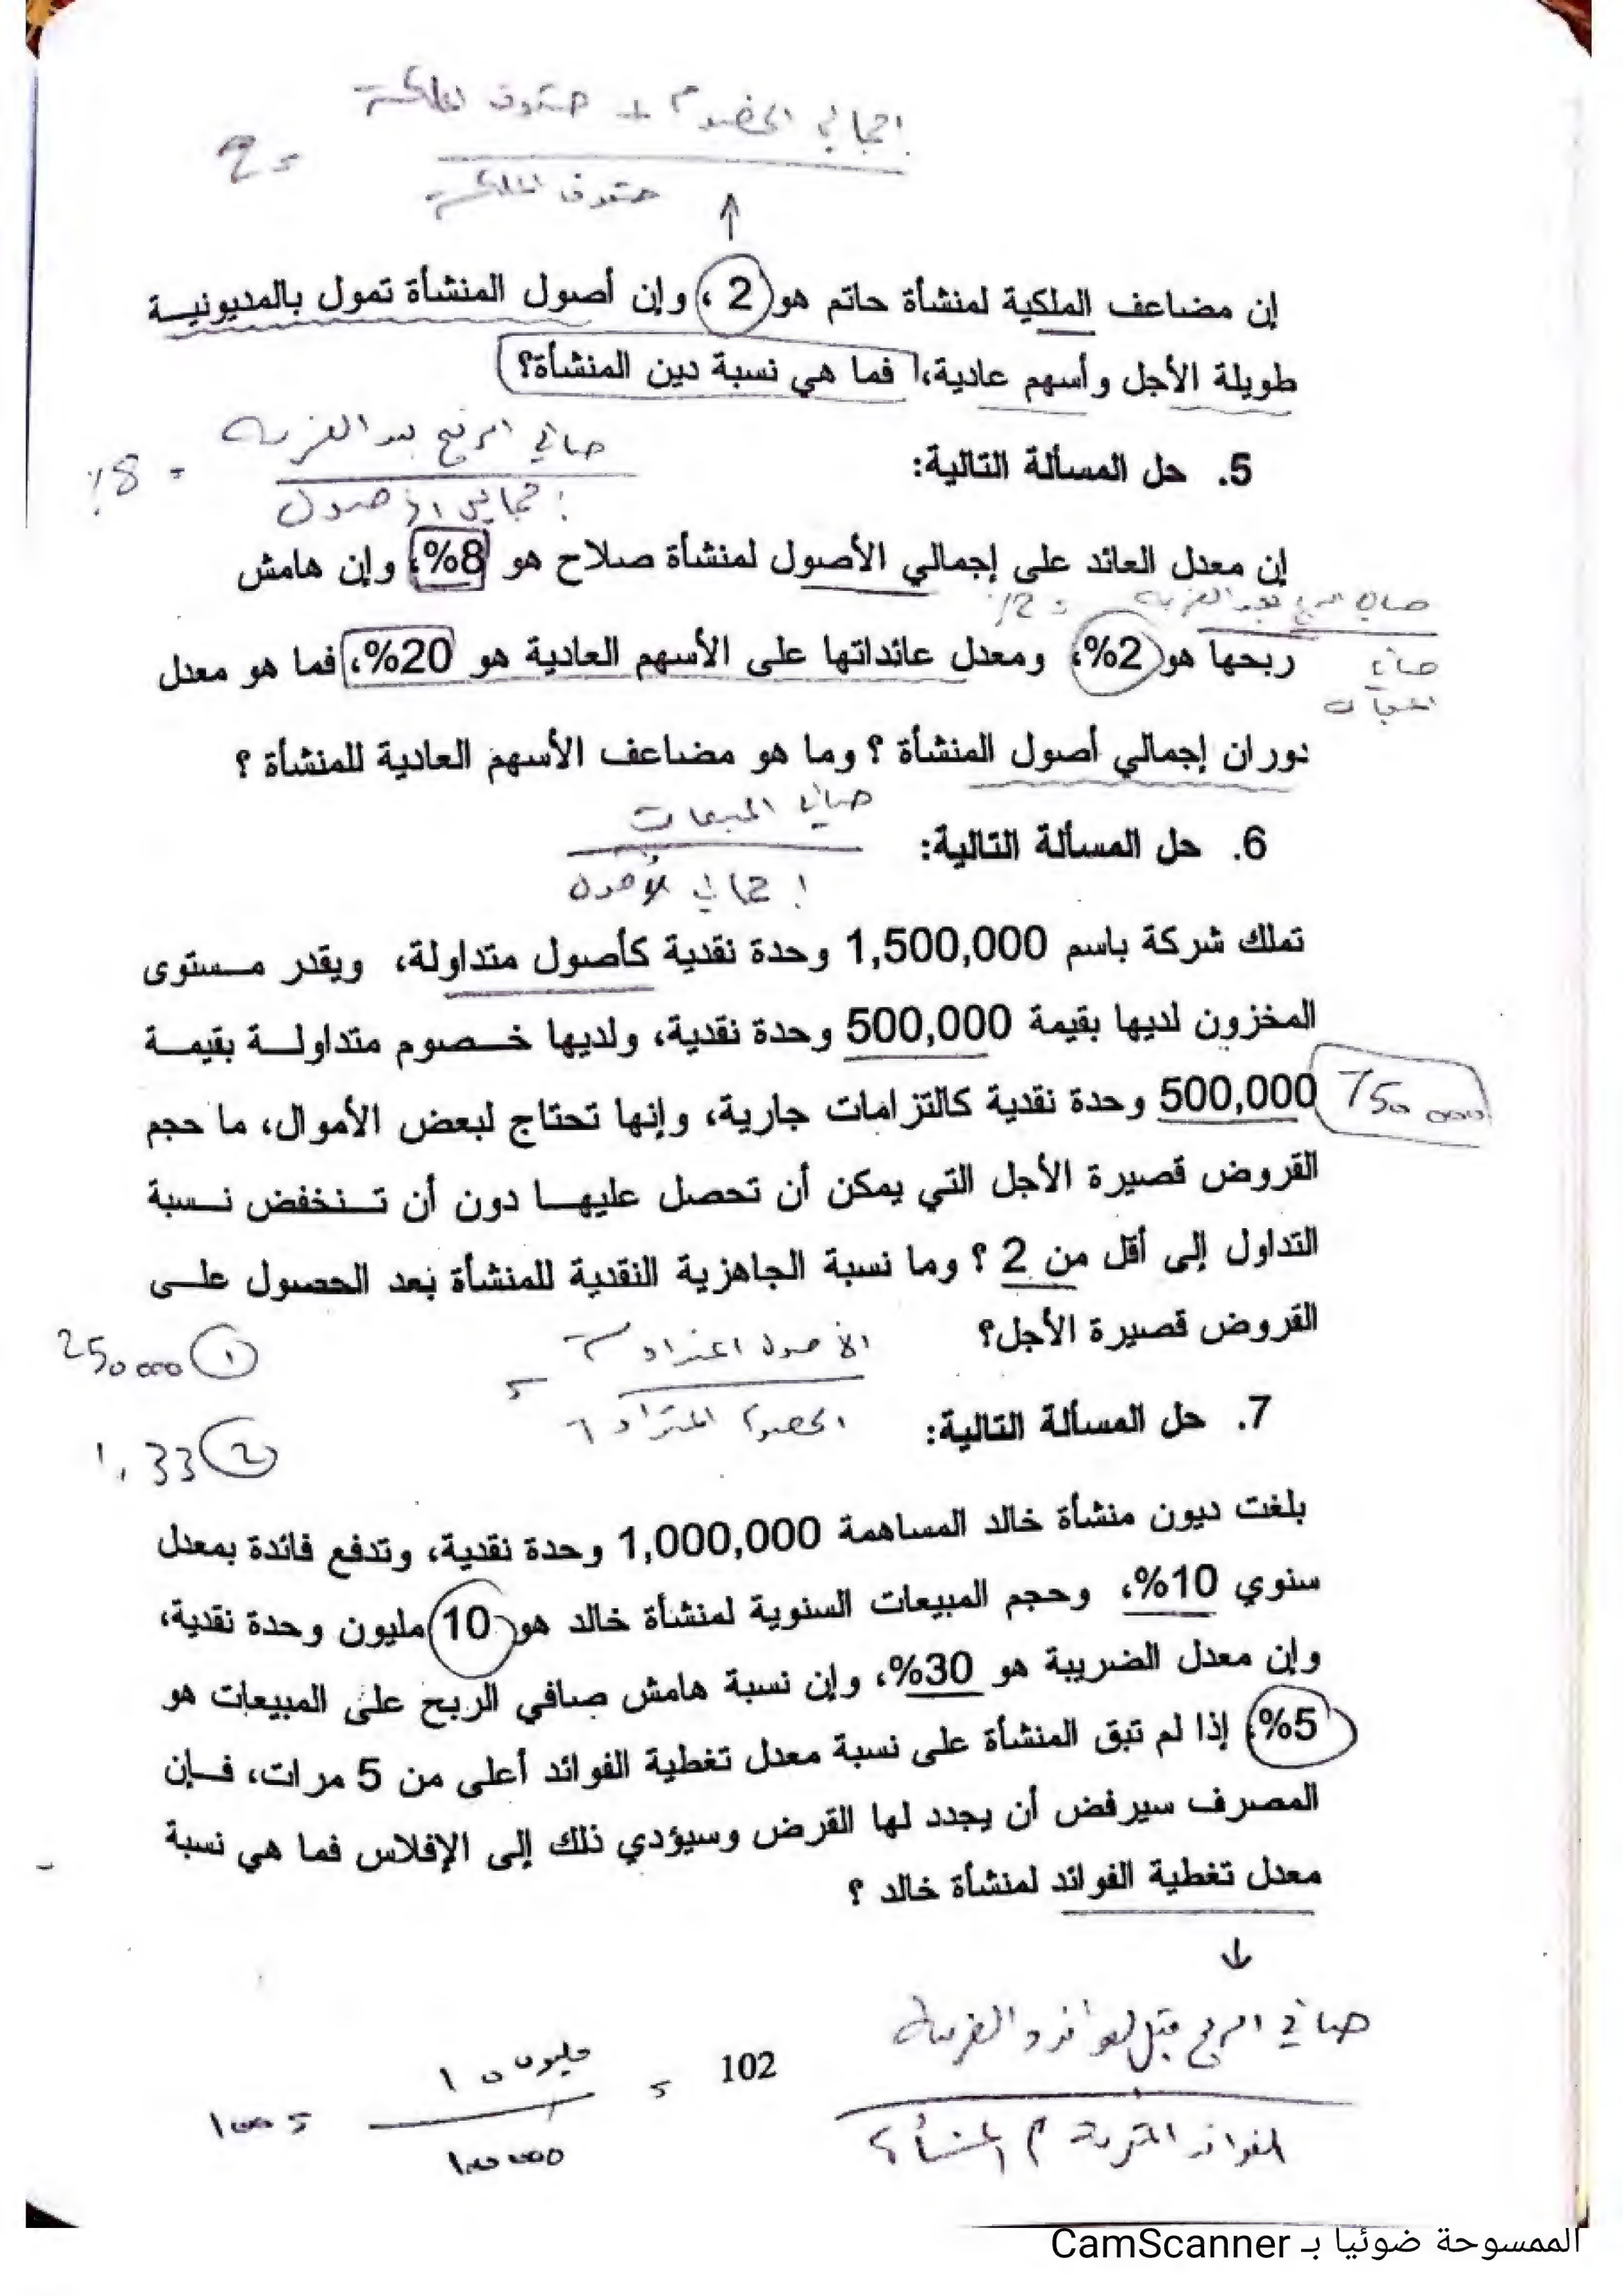 إجمالي الخصوم + حقوق الملكية
= 2
حقوق الملكية
إن مضاعف الملكية لمنشأة حاتم هو 2 ، وإن أصول المنشأة تمول بالمديونية
طويلة الأجل وأسهم عادية، فما هي نسبة دين المنشأة؟
صافي الربح بعد الضريبة
= 8%
إجمالي الأصول
5. حل المسألة التالية:
إن معدل العائد على إجمالي الأصول لمنشأة صلاح هو 8%، وإن هامش
صافي الربح بعد الضريبة = 2%
صافي
المبيعات
ربحها هو 2%، ومعدل عائداتها على الأسهم العادية هو 20%، فما هو معدل
دوران إجمالي أصول المنشأة ؟ وما هو مضاعف الأسهم العادية للمنشأة ؟
صافي المبيعات
إجمالي الأصول
6. حل المسألة التالية:
تملك شركة باسم 1,500,000 وحدة نقدية كأصول متداولة، ويقدر مستوى
المخزون لديها بقيمة 500,000 وحدة نقدية، ولديها خصوم متداولة بقيمة
500,000 وحدة نقدية كالتزامات جارية، وإنها تحتاج لبعض الأموال، ما حجم
750 000
القروض قصيرة الأجل التي يمكن أن تحصل عليها دون أن تنخفض نسبة
التداول إلى أقل من 2 ؟ وما نسبة الجاهزية النقدية للمنشأة بعد الحصول على
القروض قصيرة الأجل؟
الأصول المتداولة
=
الخصوم المتداولة
250 000 ①
1,33 ②
7. حل المسألة التالية:
بلغت ديون منشأة خالد المساهمة 1,000,000 وحدة نقدية، وتدفع فائدة بمعدل
سنوي 10%، وحجم المبيعات السنوية لمنشأة خالد هو 10 مليون وحدة نقدية،
وإن معدل الضريبة هو 30%، وإن نسبة هامش صافي الربح على المبيعات هو
5%، إذا لم تبق المنشأة على نسبة معدل تغطية الفوائد أعلى من 5 مرات، فإن
المصرف سيرفض أن يجدد لها القرض وسيؤدي ذلك إلى الإفلاس فما هي نسبة
معدل تغطية الفوائد لمنشأة خالد ؟
صافي الربح قبل الفوائد والضريبة
102
مليون